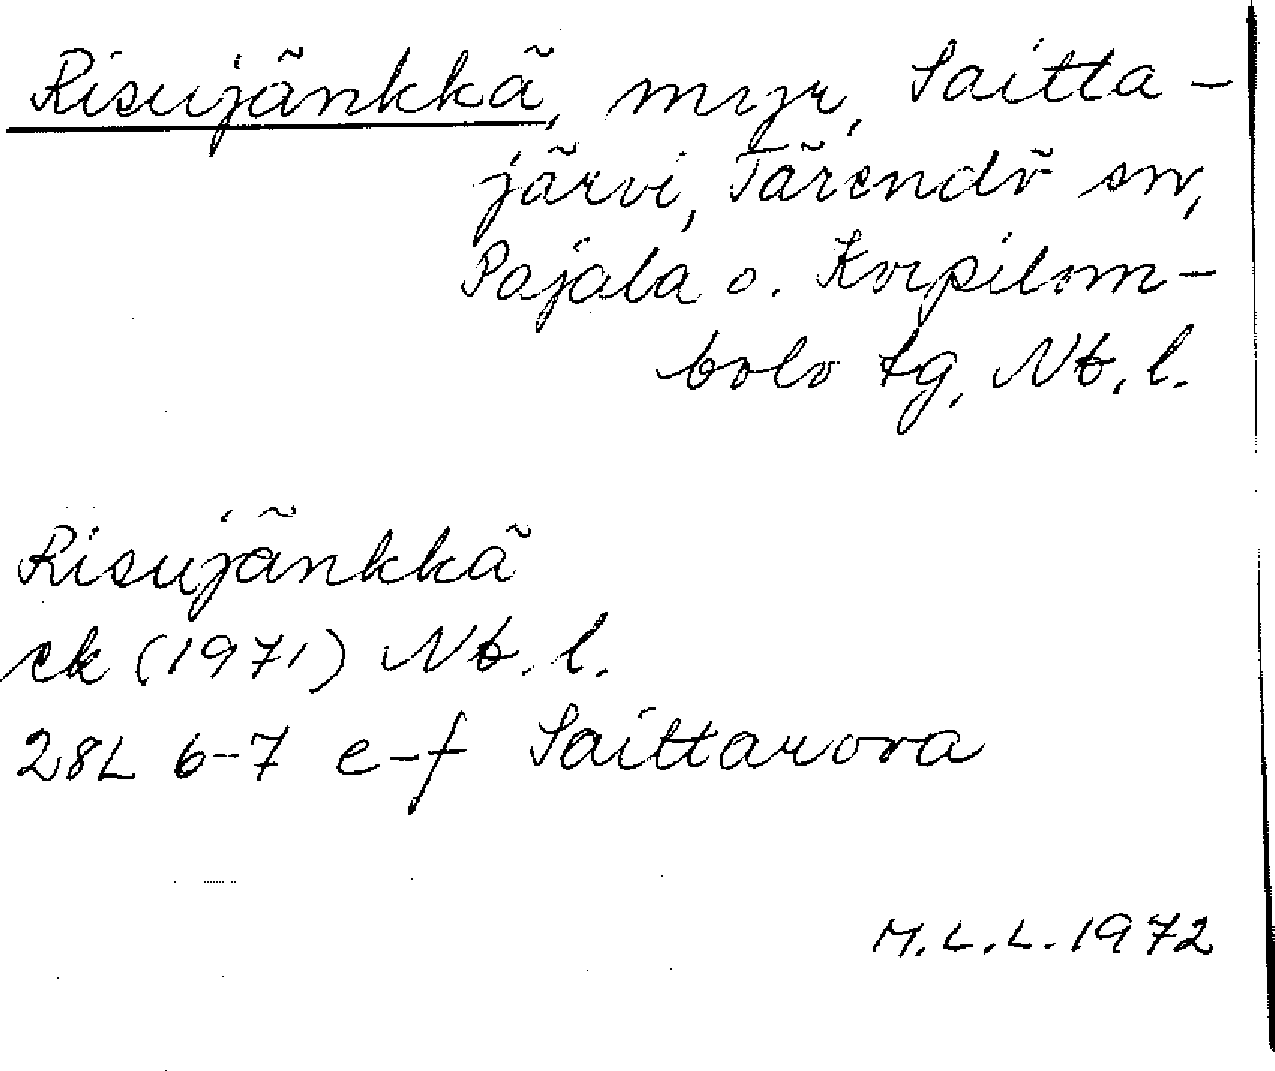 Risujänkkä, myr, Saitta-
järvi, Tärendö sn,
Pajala o. Korpilom-
bolo tg, Nb. l.
Risujänkkä
ek (1971) Nb. l.
28L 6-7 e-f Saittarova
M.L.L. 1972